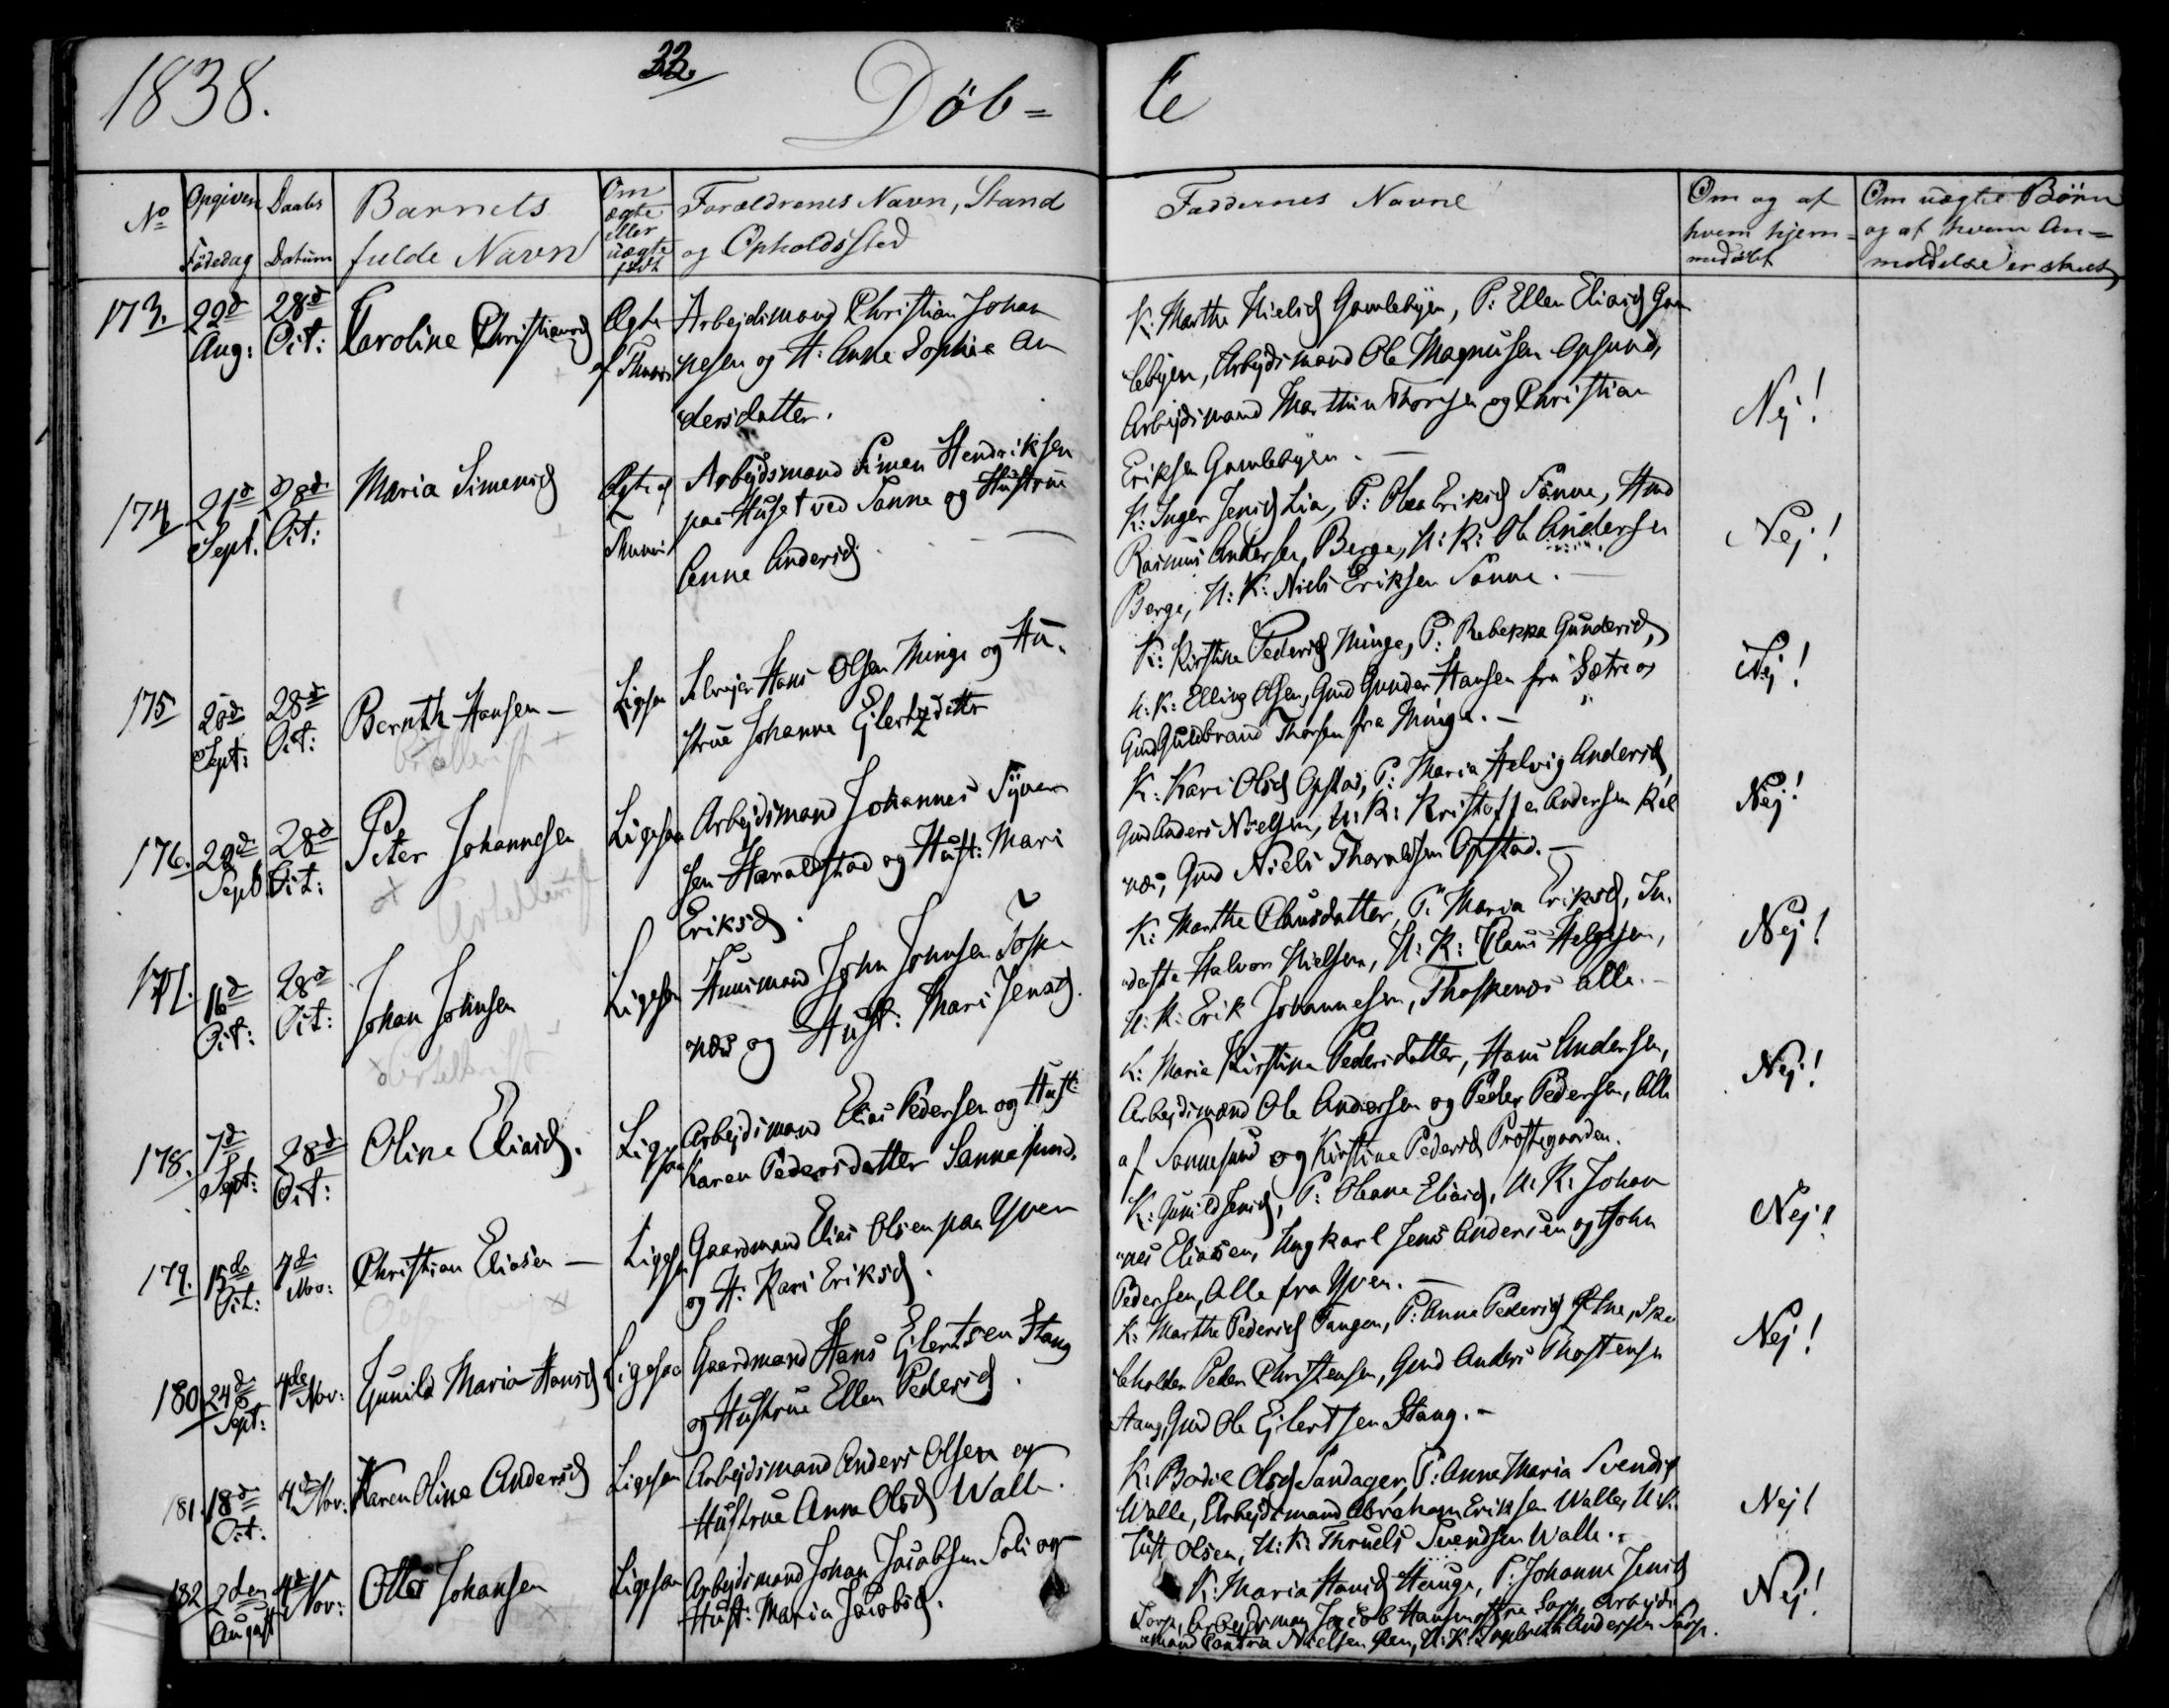 1838.
33.
Döb=
te
No
Opgiven Födedag
Daabs Datum
Barnets fulde Navn
Om ægte eller uægte født
Forældrenes Navn, Stand og Opholdssted
Faddernes Navne
Om og af hvem hjemmedøbt
Om uægte Børn og af hvem Anmeldelse er skeet
173. 22d Aug: 28d Oct: Karoline Christiansd Ægte af Thune
Arbejdsmand Christian Johan
nesen og H: Anne Sophie An
dersdatter.
K: Marthe Nielsd Gamlebyen, P: Ellen Eliasd Gam
lebyen, Arbejdsmand Ole Magnusen Opsund,
Arbejdsmand Marthin Thorsen og Christian
Eriksen Gamlebyen.
Nej!
174 21d Sept. 28d Oct: Maria Simensd Ægte af Thune
Arbejdsmand Simen Hendriksen
paa Huset ved Sanne og Hustrue
Anne Andersd
K: Inger Jensd Lia, P: Olea Eriksd Sanne, Hmd
Rasmus Andersen Berge, U: K: Ole Andersen
Berge, U: K: Niels Eriksen Sanne.
Nej!
175 Sept: 28d Oct: Bernth Hansen Ligesaa
Selvejer Hans Olsen Minge og Hu
strue Johanne Ejlertzdatter
K: Kirstine Pedersd Minge, P: Rebekka Gundersd,
U: K: Elling Olsen, Gmd Gunder Hansen fra Sætre og
Gmd Guldbrand Thorsen fra Minge.
Nej!
176. 29d Sept 28d Oct: Peter Johannesen Ligesaa
Arbejdsmand Johannes Syver
sen Haraldstad og Hust: Mari
Eriksd.
K: Kari Olsd Opstad, P: Maria Helvig Andersd,
Gmd Anders Nielsen, U: K: Kristoffer Andersen Kal
næs, Gmd Niels Tharaldsen Opstad.
Nej!
177. 16d Oct: 28d Oct: Johan Johnsen Ligesaa
Huusmand John Johnsen Toske
næs og Hust: Mari Jensd.
K: Marthe Clausdatter, P: Maria Eriksd, In
derste Halvor Nielsen, U: K: Claus Helgesen,
U: K: Erik Johannesen, Thoskenæs alle.
Nej!
178. 7d Sept: 28d Oct: Oline Eliasd. Ligesaa
Arbejdsmand Elias Pedersen og Hust:
Karen Pedersdatter Sannesund.
K: Marie Kirstine Pedersdatter, Hans Andersen,
Arbejdsmand Ole Andersen og Peder Pedersen, Alle
af Sannesund og Kirstine Pedersd Prestegaarden.
Nej!
179. 15de Oct: 4de Nov: Christian Eliasen Ligesaa
Gaardmand Elias Olsen paa Yven
og H: Kari Eriksd.
K: Gunild Jensd, P: Oleane Eliasd, U: K: Johan
nes Eliasen, Ungkarl Jens Andersen og John
Pedersen, Alle fra Yven.
Nej!
180 24de Sept: 4de Nov: Gunild Maria Hansd Ligesaa
Gaardmand Hans Ejlertsen Stang
og Hustrue Ellen Pedersd.
K: Marthe Pedersd Tangen, P: Anne Pedersd
beholder Peder Christensen, Gmd Anders Thostensen
Stang, Gmd Ole Ejlertsen Stang.
Nej!
181. 18d Oct: 4de Nov: Karen Oline Andersd Ligesaa
Arbejdsmand Anders Olsen og
Hustrue Anne Olsd Walle.
K: Bodil Olsd Sandager, P: Anne Maria Svendsd
Walle, Arbejdsmand Abraham Eriksen Walle, U: K:
Olsen, U: K: Thruels Svendsen Walle.
Nej!
182 2den August 4d Nov: Otto Johansen Ligesaa
Arbejdsmand Johan Jacobsen Soli og
Hust: Maria Jacobsd.
K: Maria Hansd Hauge, P: Johanne Jensd
Sorp, Arbejdsmand Jacob Hansen Sorp, Arbejds
mand Nielsen U: K: Ingebrith Andersen Sorp.
Nej!